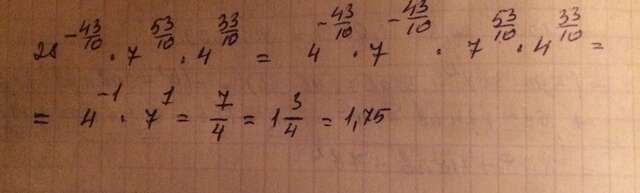 28^(-43/10) · 7^(53/10) · 4^(33/10) = 4^(-43/10) · 7^(-43/10) · 7^(53/10) · 4^(33/10) =
= 4^(-1) · 7^1 = 7/4 = 1 3/4 = 1,75